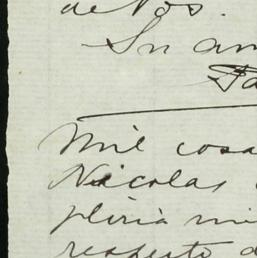 de Vos.
Su am
Fa
Mil cosa
Nicolas
pliria mi
respecto d